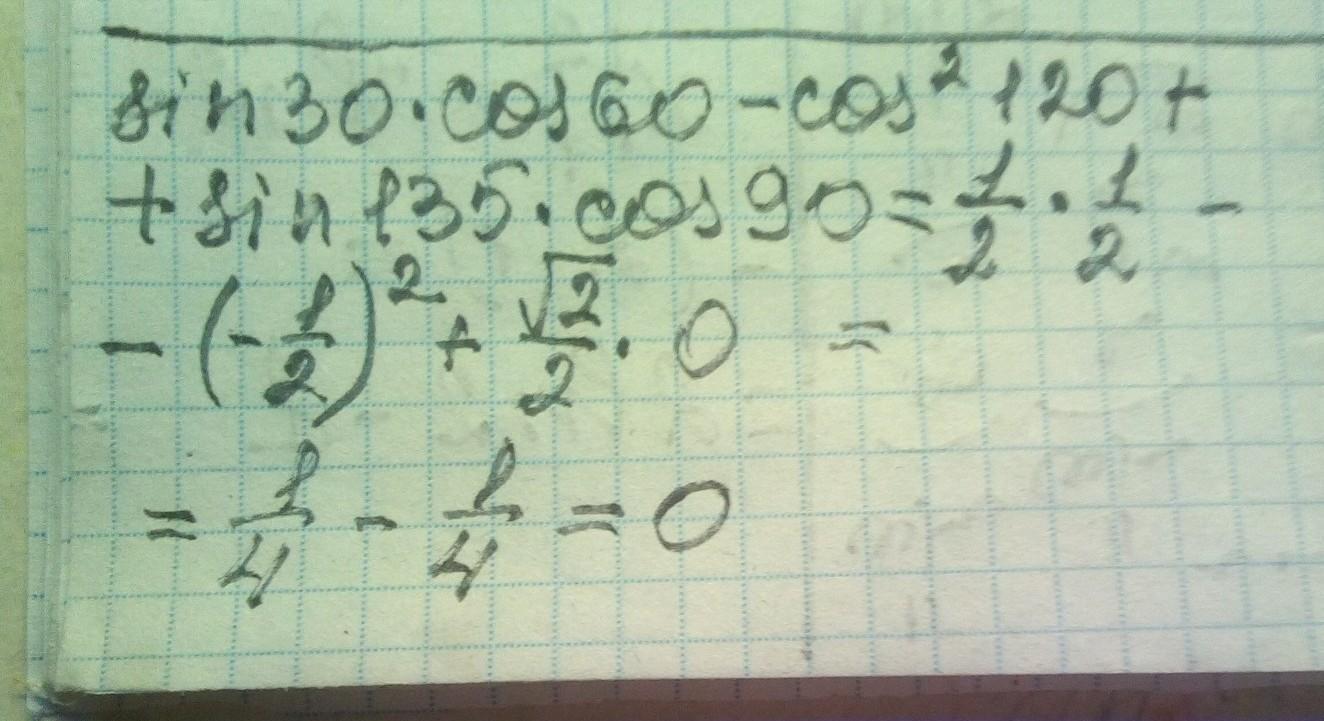 sin30·cos60-cos²120+
+sin135·cos90=1/2·1/2-
-(-1/2)²+√2/2·0=
=1/4-1/4=0